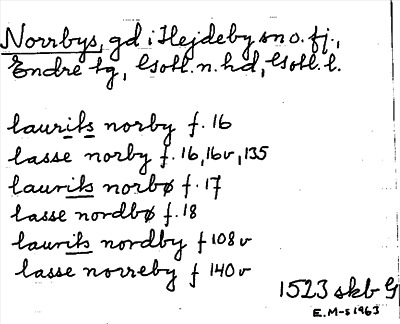 Norrbys, gd i Hejdeby sn o. fj.,
Endre tg, Gotl. n. hd, Gotl. l.
lauriks norby f. 16
lasse norby f. 16, 16v, 135
lauriks norbø f. 17
lasse nordbø f. 18
lauriks nordby f 108 v
lasse norreby f 140 v
1523 skb G
E. M-s 1963